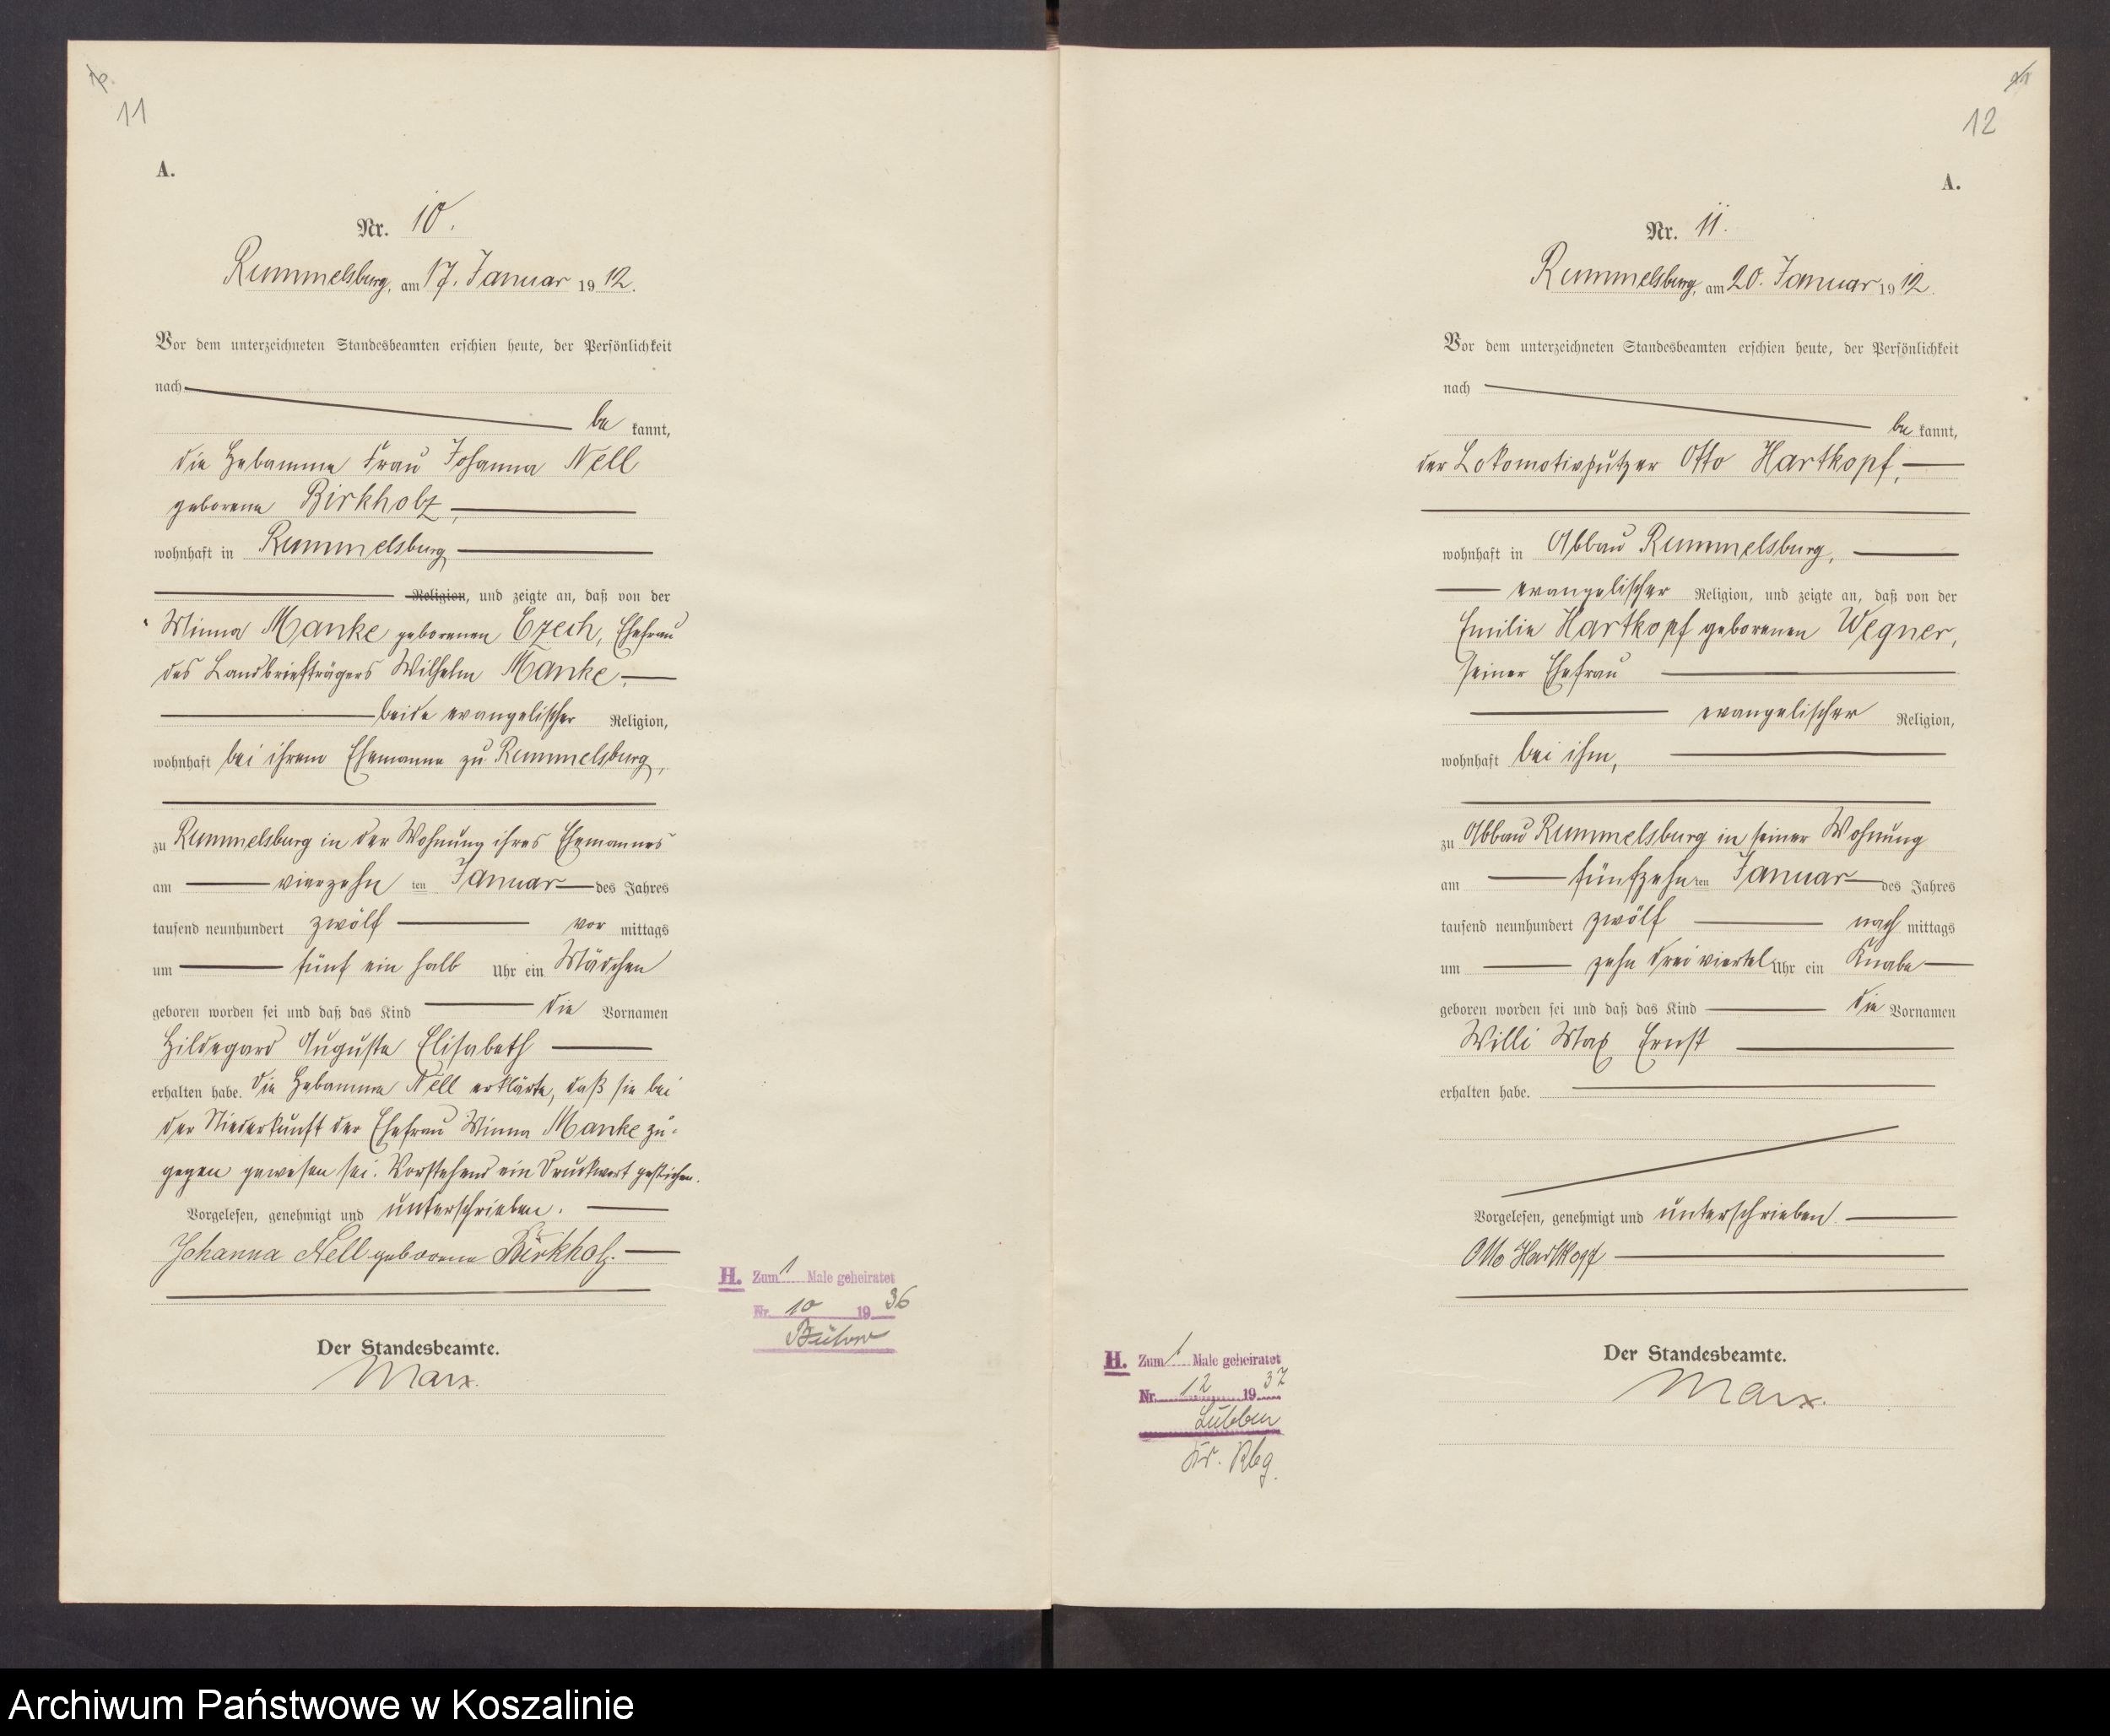 11
A.
Nr. 10.
Rummelsburg, am 17. Januar 1912.
Vor dem unterzeichneten Standesbeamten erschien heute, der Persönlichkeit
nach
be kannt,
die Hebamme Frau Johanna Nell
geborene Birkholz,
wohnhaft in Rummelsburg
Religion, und zeigte an, daß von der
Minna Manke geborenen Czech, Ehefrau
des Landbriefträgers Wilhelm Manke,
beide evangelischer Religion,
wohnhaft bei ihrem Ehemanne zu Rummelsburg,
zu Rummelsburg in der Wohnung ihres Ehemannes
am vierzehn ten Januar des Jahres
tausend neunhundert zwölf vor mittags
um fünf ein halb Uhr ein Mädchen
geboren worden sei und daß das Kind die Vornamen
Hildegard Auguste Elisabeth
erhalten habe. Die Hebamme Nell erklärte, daß sie bei
der Niederkunft der Ehefrau Minna Manke zu-
gegen gewesen sei. Vorstehend ein Druckwort gestrichen.
Vorgelesen, genehmigt und unterschrieben.
Johanna Nell geborene Birkholz.
Der Standesbeamte.
Marx.
H. Zum 1 Male geheiratet
Nr. 10 1936
Bütow
12
A.
Nr. 11.
Rummelsburg, am 20. Januar 1912.
Vor dem unterzeichneten Standesbeamten erschien heute, der Persönlichkeit
nach
be kannt,
der Lokomotivputzer Otto Hartkopf,
wohnhaft in Abbau Rummelsburg,
evangelischer Religion, und zeigte an, daß von der
Emilie Hartkopf geborenen Wegner,
seiner Ehefrau
evangelischer Religion,
wohnhaft bei ihm,
zu Abbau Rummelsburg in seiner Wohnung
am fünfzehn ten Januar des Jahres
tausend neunhundert zwölf nach mittags
um zehn drei viertel Uhr ein Knabe
geboren worden sei und daß das Kind die Vornamen
Willi Max Ernst
erhalten habe.
Vorgelesen, genehmigt und unterschrieben.
Otto Hartkopf
Der Standesbeamte.
Marx.
H. Zum 1 Male geheiratet
Nr. 12 1937
Lübben
Kr. Rbg.
Archiwum Państwowe w Koszalinie